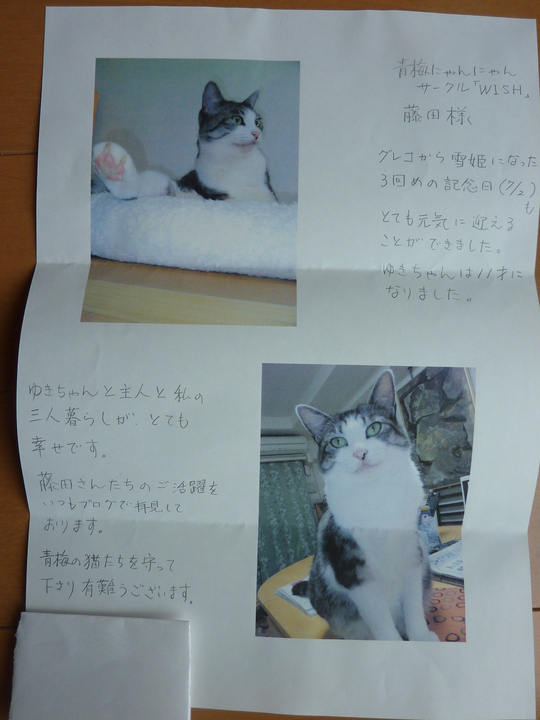 青梅にゃんにゃん
サークル「WISH」
藤田様
グレコから雪姫になった
3回めの記念日(7/2)
も
とても元気に迎える
ことができました。
ゆきちゃんは11才に
なりました。
ゆきちゃんと主人と私の
三人暮らしが、とても
幸せです。
藤田さんたちのご活躍を
いつもブログで拝見して
おります。
青梅の猫たちを守って
下さり有難うございます。